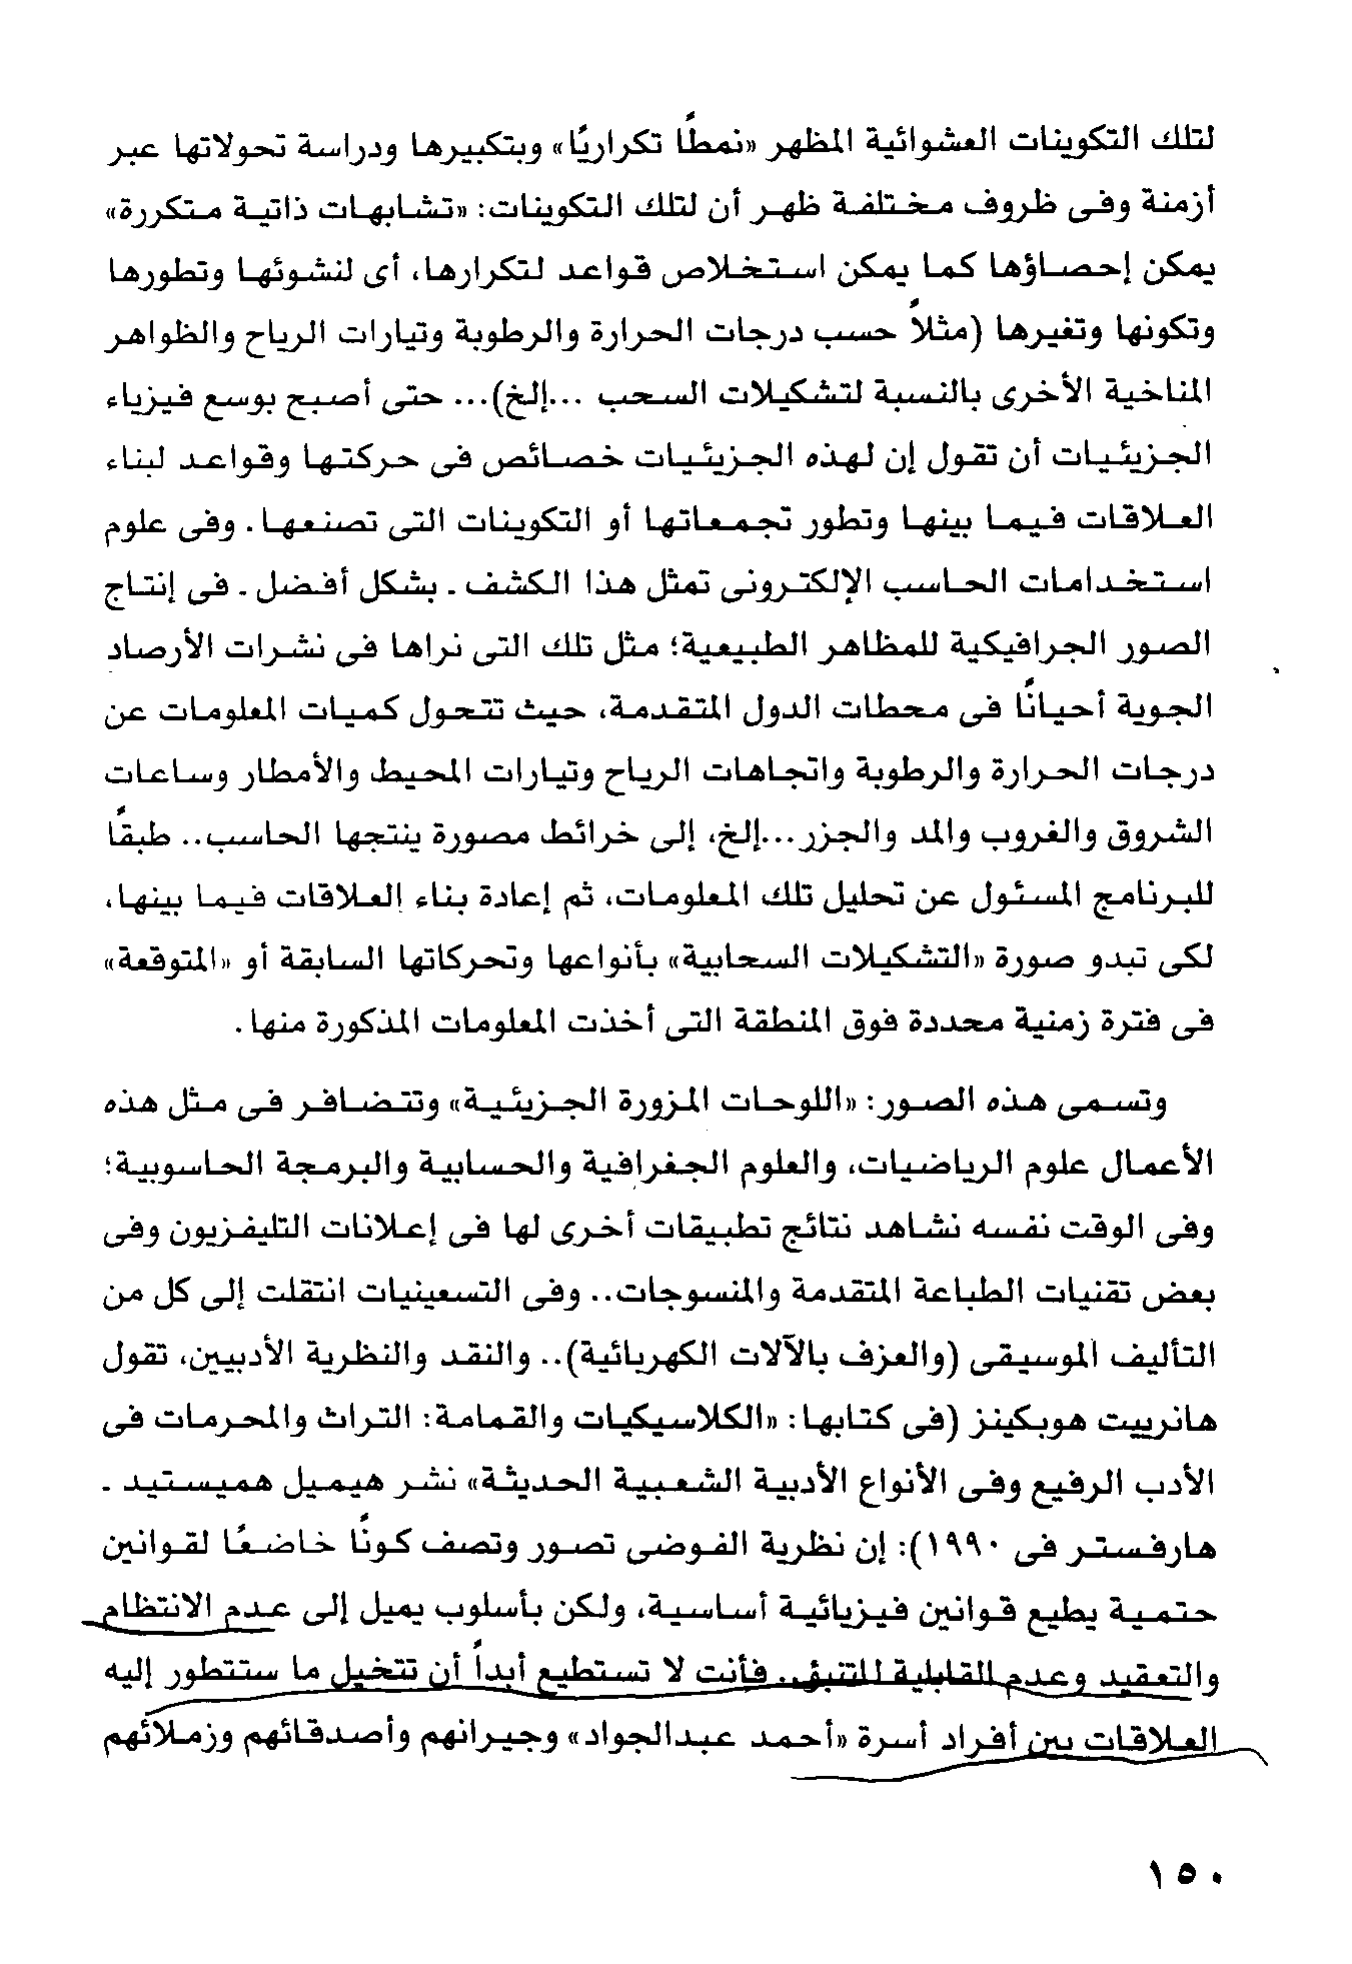 لتلك التكوينات العشوائية المظهر «نمطًا تكراريًا» وبتكبيرها ودراسة تحولاتها عبر
أزمنة وفى ظروف مختلفة ظهر أن لتلك التكوينات: «تشابهات ذاتية متكررة»
يمكن إحصاؤها كما يمكن استخلاص قواعد لتكرارها، أى لنشوئها وتطورها
وتكونها وتغيرها (مثلاً حسب درجات الحرارة والرطوبة وتيارات الرياح والظواهر
المناخية الأخرى بالنسبة لتشكيلات السحب ...إلخ)... حتى أصبح بوسع فيزياء
الجزيئيات أن تقول إن لهذه الجزيئيات خصائص فى حركتها وقواعد لبناء
العلاقات فيما بينها وتطور تجمعاتها أو التكوينات التى تصنعها. وفى علوم
استخدامات الحاسب الإلكترونى تمثل هذا الكشف ـ بشكل أفضل ـ فى إنتاج
الصور الجرافيكية للمظاهر الطبيعية؛ مثل تلك التى نراها فى نشرات الأرصاد
الجوية أحيانًا فى محطات الدول المتقدمة، حيث تتحول كميات المعلومات عن
درجات الحرارة والرطوبة واتجاهات الرياح وتيارات المحيط والأمطار وساعات
الشروق والغروب والمد والجزر...إلخ، إلى خرائط مصورة ينتجها الحاسب.. طبقًا
للبرنامج المسئول عن تحليل تلك المعلومات، ثم إعادة بناء العلاقات فيما بينها،
لكى تبدو صورة «التشكيلات السحابية» بأنواعها وتحركاتها السابقة أو «المتوقعة»
فى فترة زمنية محددة فوق المنطقة التى أخذت المعلومات المذكورة منها.
وتسمى هذه الصور: «اللوحات المزورة الجزيئية» وتتضافر فى مثل هذه
الأعمال علوم الرياضيات، والعلوم الجغرافية والحسابية والبرمجة الحاسوبية؛
وفى الوقت نفسه نشاهد نتائج تطبيقات أخرى لها فى إعلانات التليفزيون وفى
بعض تقنيات الطباعة المتقدمة والمنسوجات.. وفى التسعينيات انتقلت إلى كل من
التأليف الموسيقى (والعزف بالآلات الكهربائية).. والنقد والنظرية الأدبيين، تقول
هانرييت هوبكينز (فى كتابها: «الكلاسيكيات والقمامة: التراث والمحرمات فى
الأدب الرفيع وفى الأنواع الأدبية الشعبية الحديثة» نشر هيميل هميستيد ـ
هارفستر فى ١٩٩٠): إن نظرية الفوضى تصور وتصف كونًا خاضعًا لقوانين
حتمية يطيع قوانين فيزيائية أساسية، ولكن بأسلوب يميل إلى عدم الانتظام
والتعقيد وعدم القابلية للتنبؤ.. فأنت لا تستطيع أبداً أن تتخيل ما ستتطور إليه
العلاقات بين أفراد أسرة «أحمد عبدالجواد» وجيرانهم وأصدقائهم وزملائهم
١٥٠